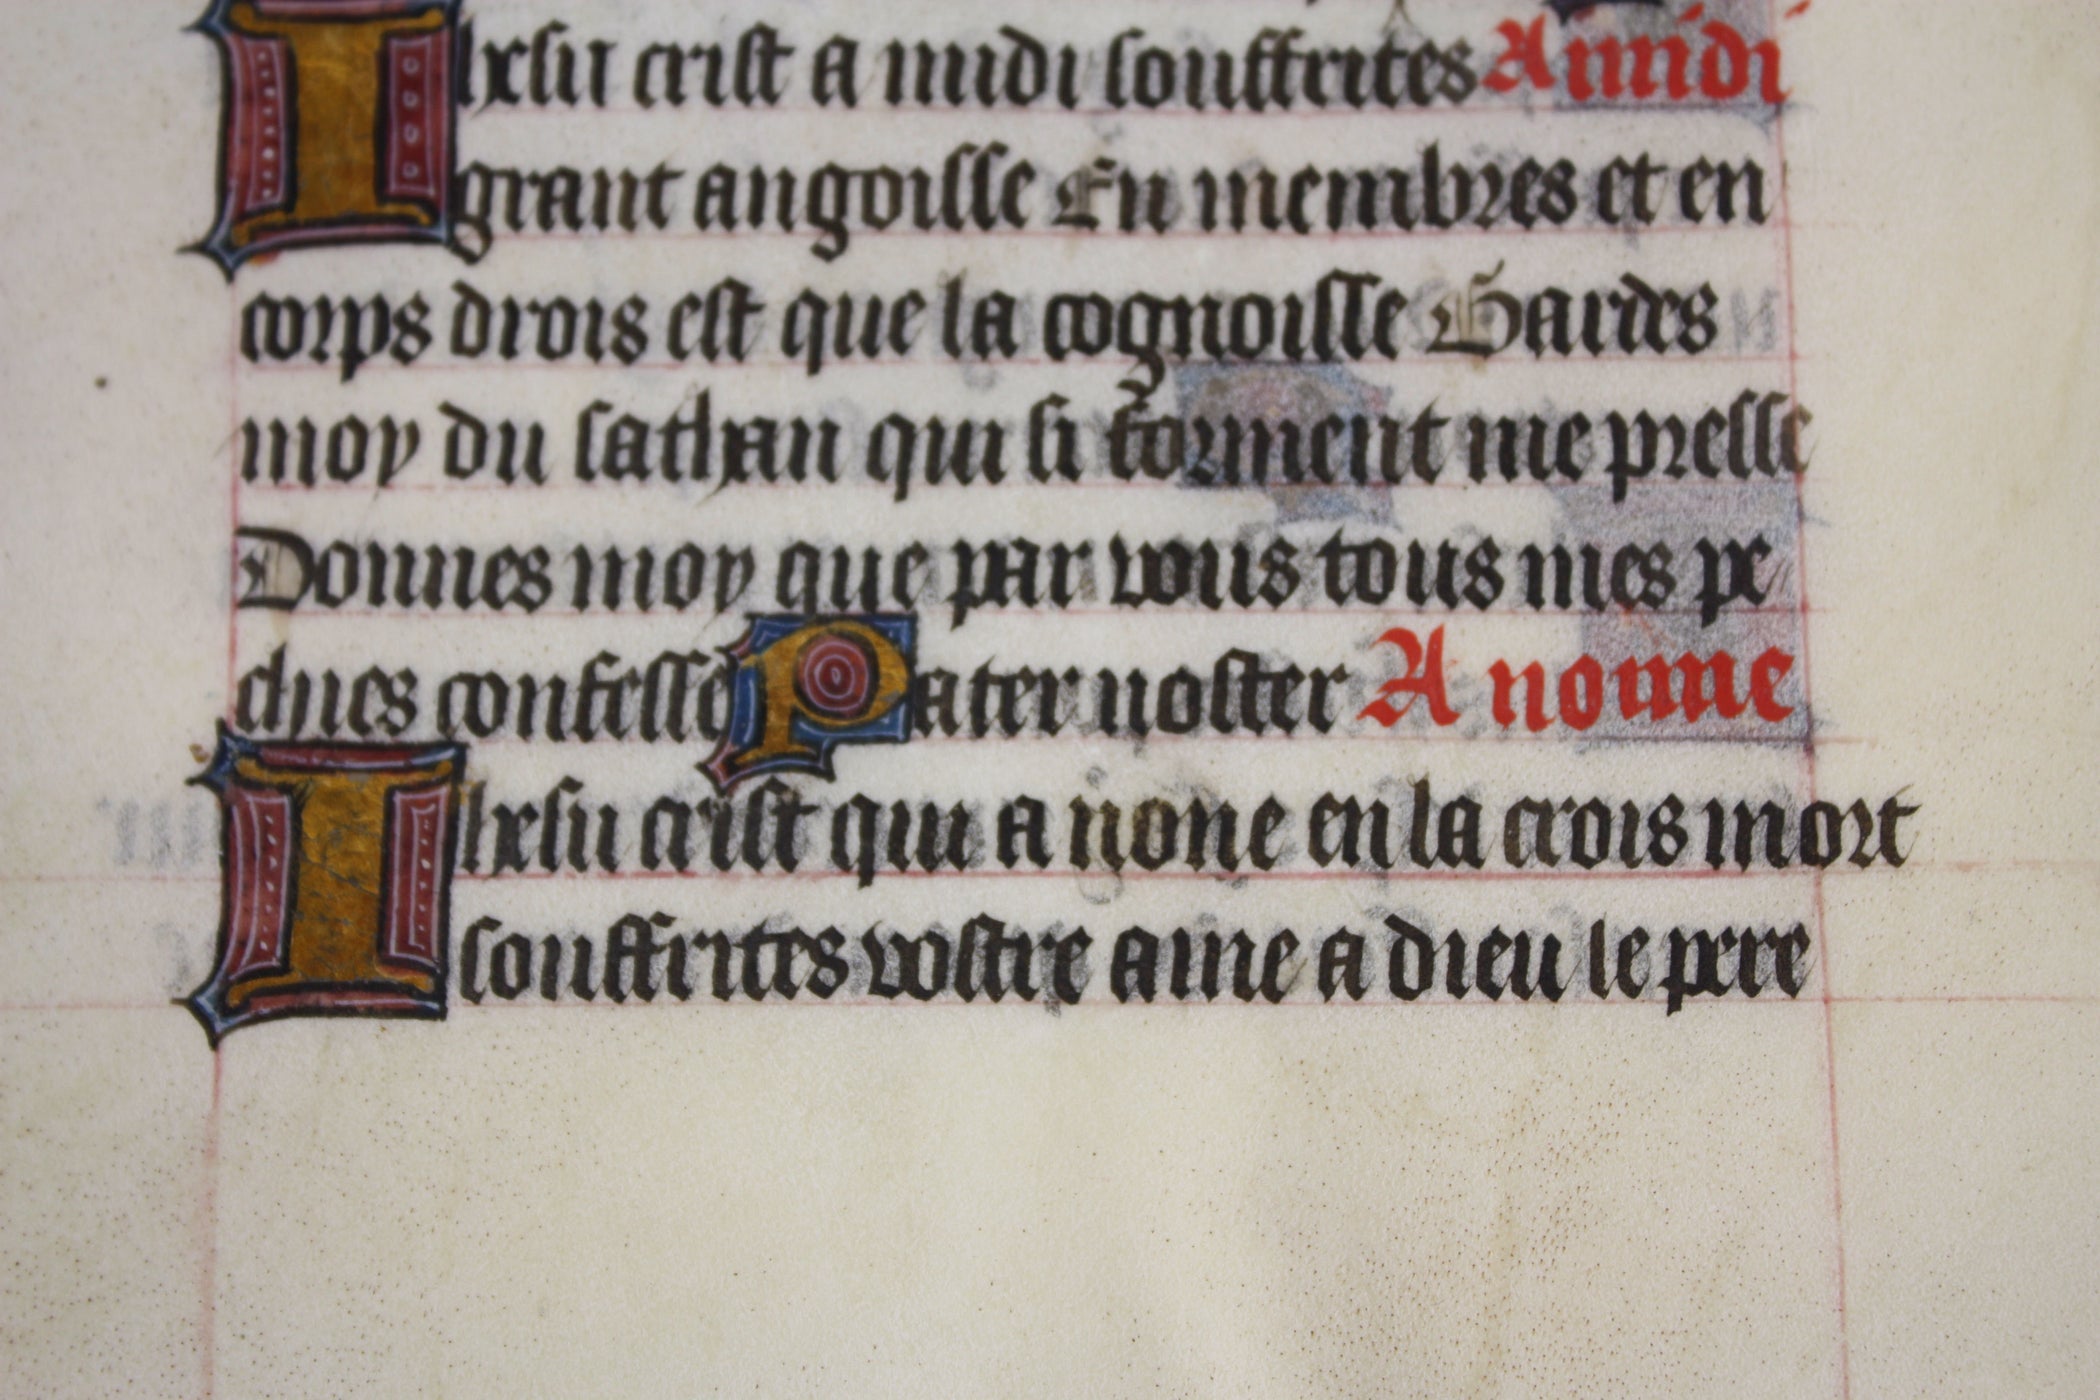 Ihxsu crist a midi souffrites A midi
grant angoisse En membres et en
corps drois est que la cognoisse Gardes
moy du sathan qui si forment me presse
Donnes moy que par vous tous mes pe
chies confesse Pater noster A nonne
Ihxsu crist qui a none en la crois mort
souffrites vostre ame a dieu le pere